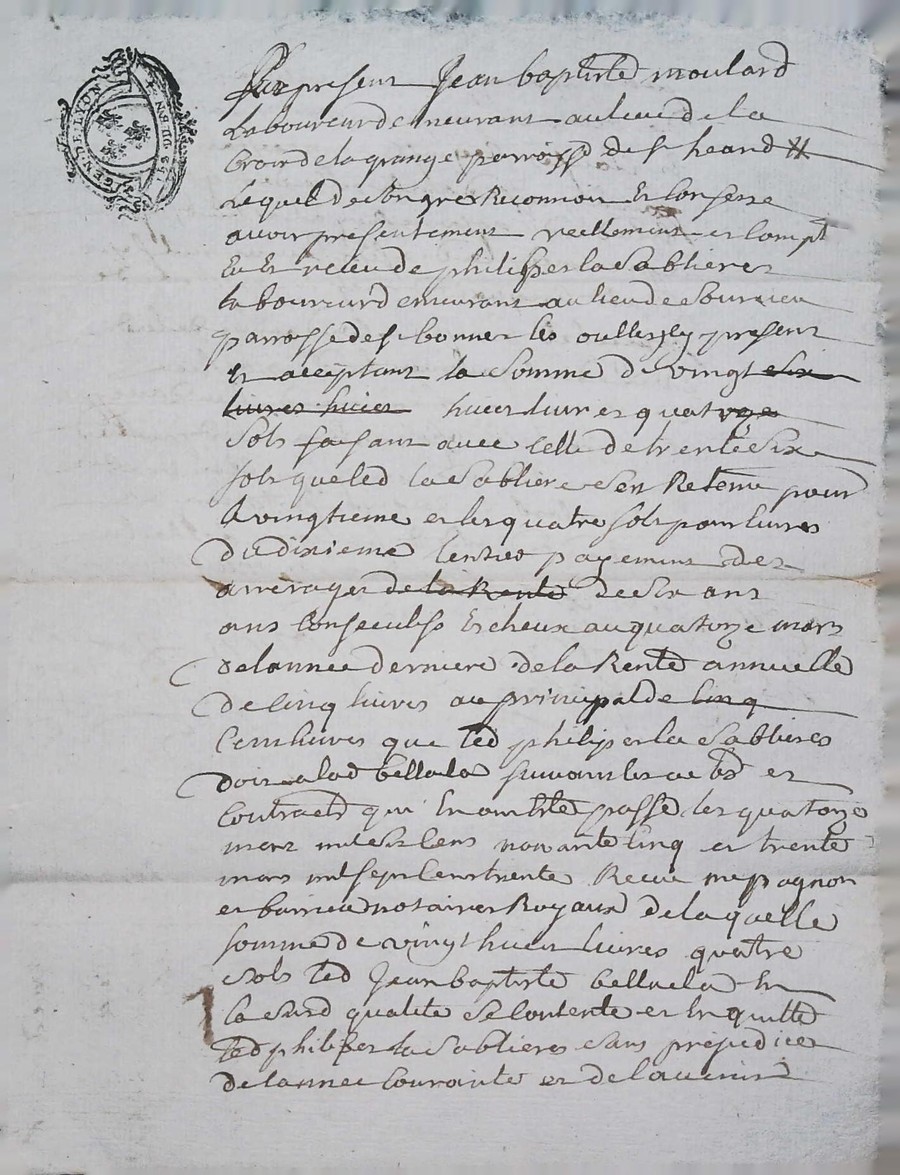 GEN. DE LYON
Fut present Jean baptiste moulard
Laboureur demeurant au lieu de la
Croix de la grange parroisse de st heand
Lequel de son gré Reconnoit Et Confesse
avoir presentement reellement et compt
Eu Et receu de philipes la Sablieres
laboureur demeurant au lieu de
parrosse de st bonnet les oulles y present
Et acceptant la Somme de vingt six
livres huict huict livres quatre
Sols faisant avec celle de trente Six
sols que led la Sabliere a En Retenu pour
le vingtieme et les quatre sols pour livres
du dixieme l'entier payement des
arrerages de la Rente de Six ans
ans Consecutifs Escheux au quatorze mars
de lannee derniere de la Rente annuelle
de Cinq livres au principal de Cinq
Cent livres que led philipes la Sablieres
doit a lad suivant les actes et
Contracts qui En ont été passé les quatorze
mars mil Six Cens nonante Cinq et trente
mars mil sept Cens trente Receu me pagnon
et notaires Royaux de laquelle
somme de vingt huict livres quatre
sols led Jean baptiste En
la susd qualité Se Contente et En quitte
led philipes la Sablieres Sans prejudice
de lannee Courante et de lavenir